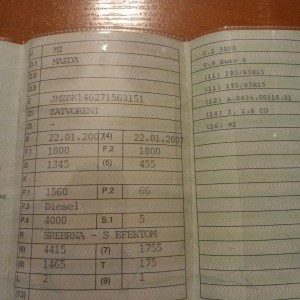 J M1
D.1 MAZDA
D.2
D.3
E JMZBK146271563151
(3) ZATVORENI
B 22.01.2007 (4) 22.01.2007
F.1 1800 F.2 1800
G 1345 (5) 455
P.1 1560 P.2 66
P.3 Diesel
P.4 4000 S.1 5
R SREBRNA - S EFEKTOM
(6) 4415 (7) 1755
(8) 1465 T 175
L 2 (9) 1
U.2 3000
V.9 Euro 4
(11) 195/65R15
(11) 195/65R15
(14) 3, 2.6 CD
(16) M1